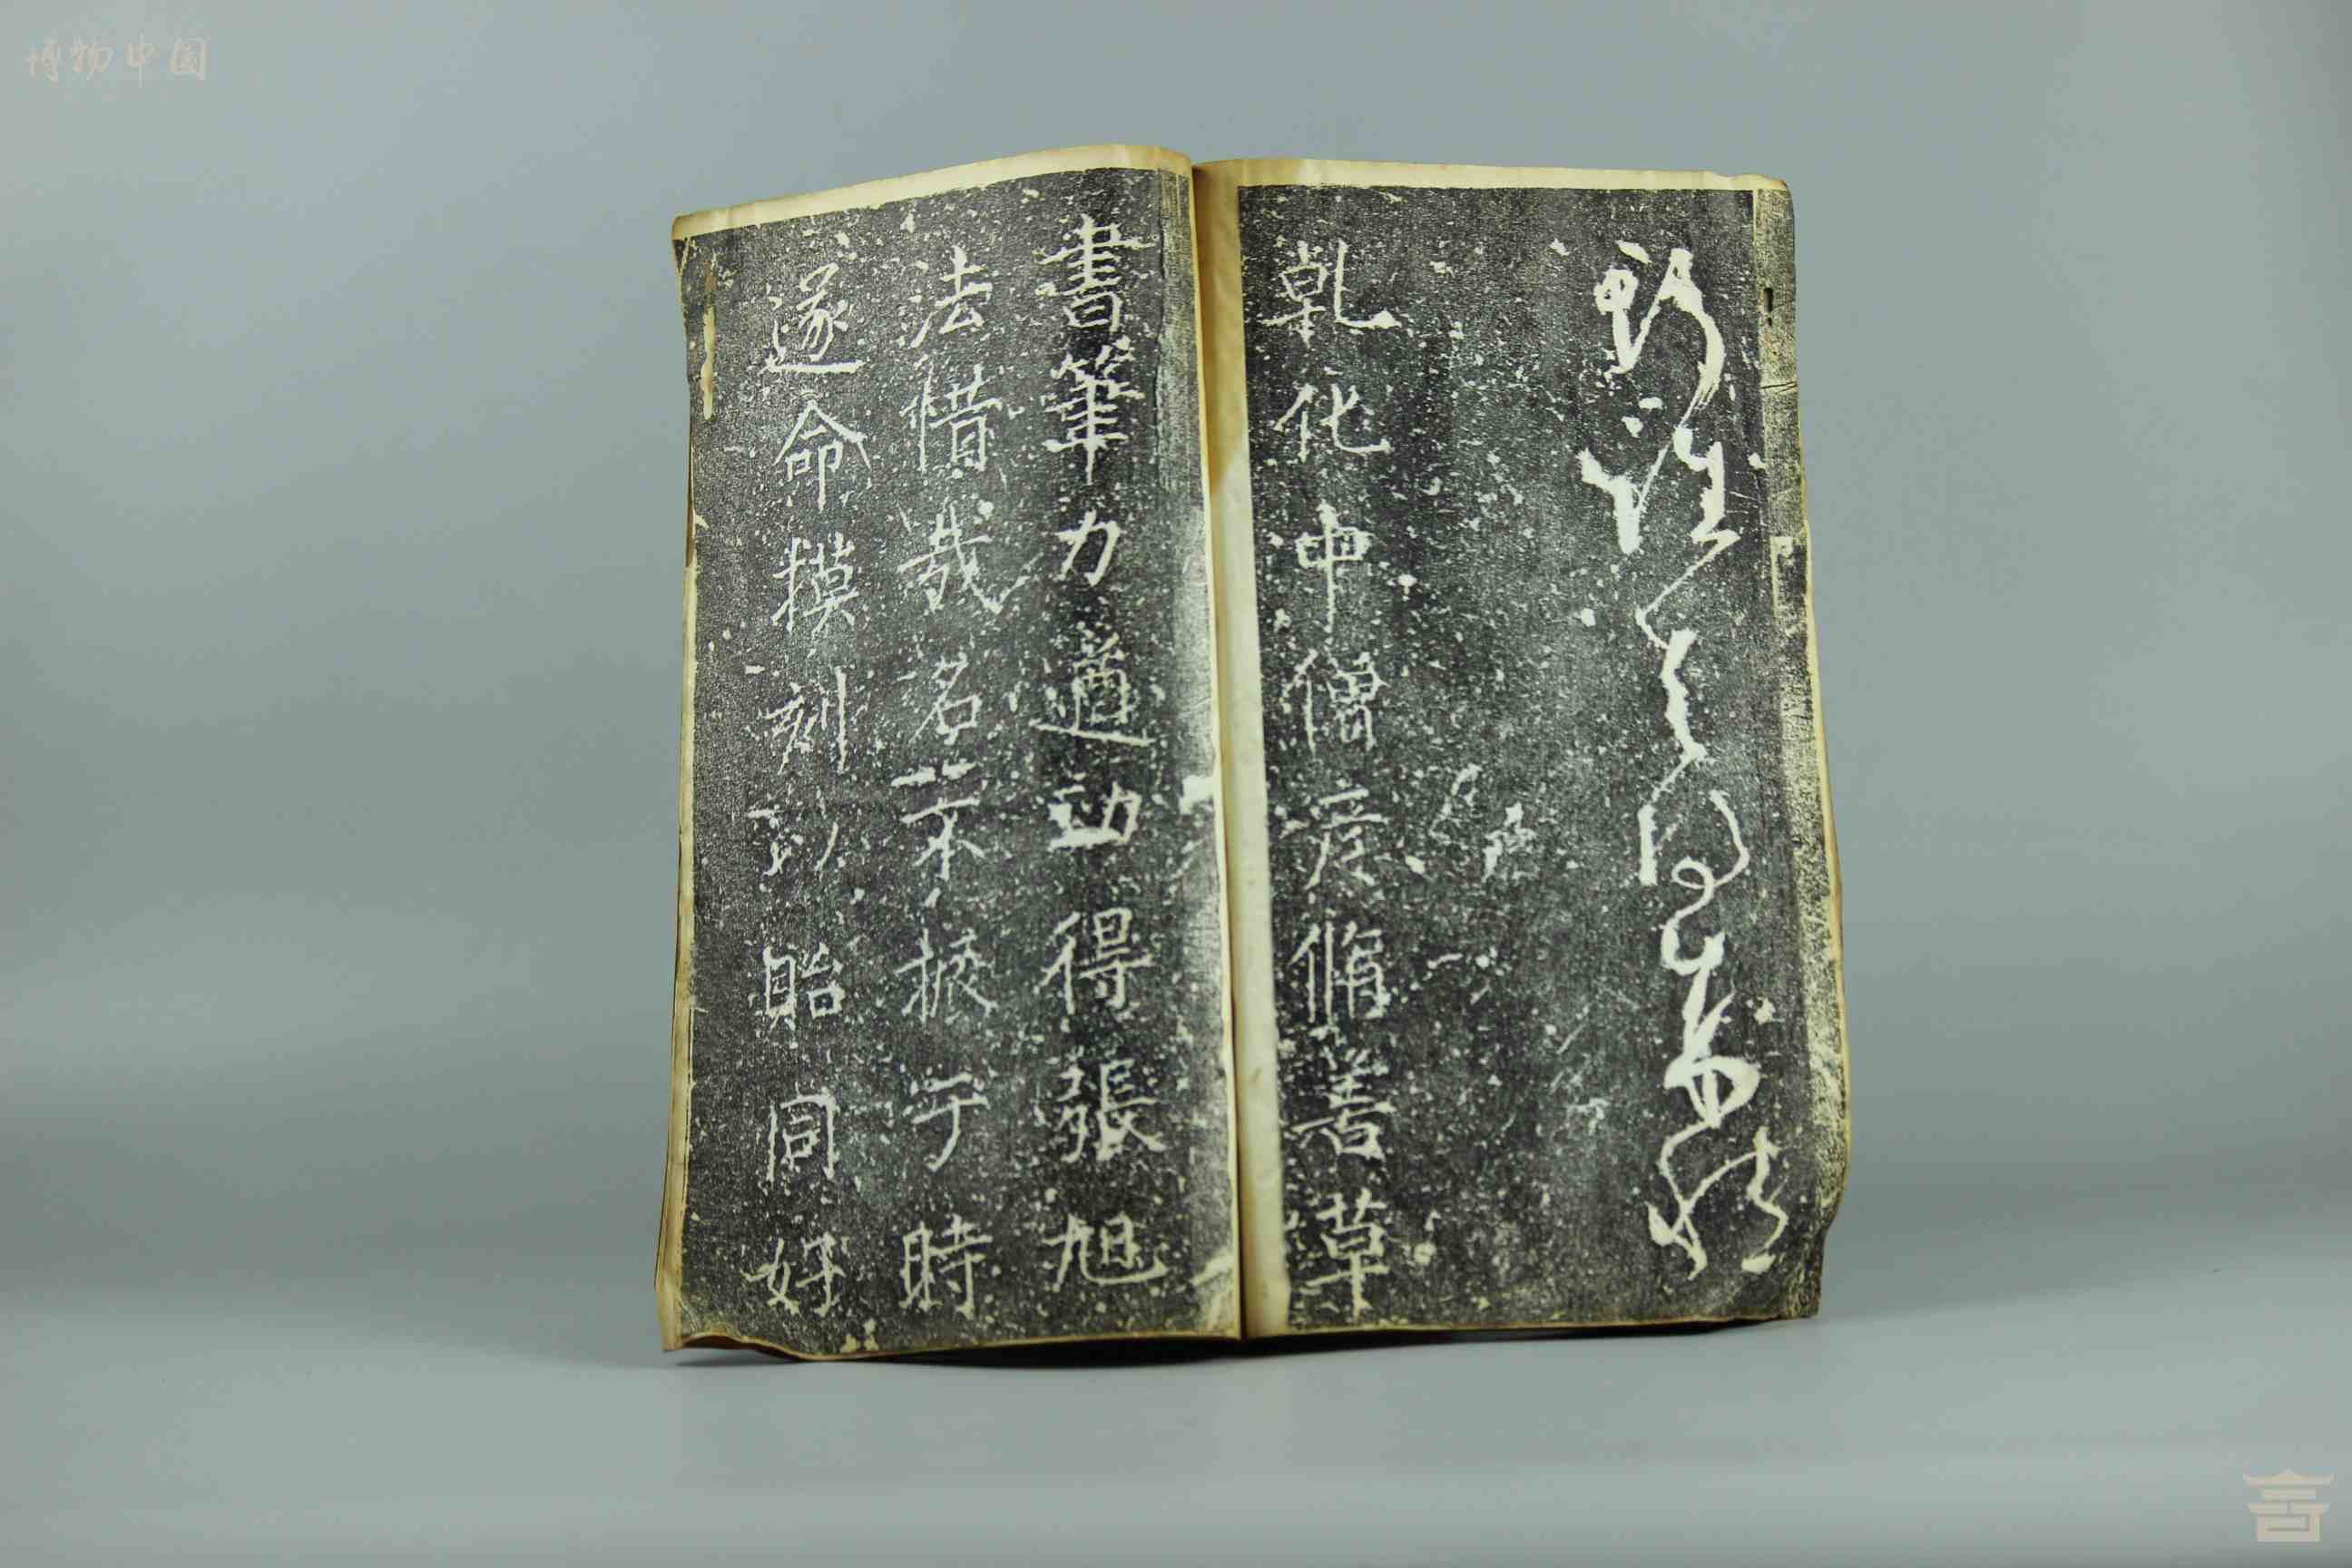 乹化中僧彦脩善草
書筆力遒勁得張旭
法惜哉名不振于時
遂命摸刻以貽同好
博物中国